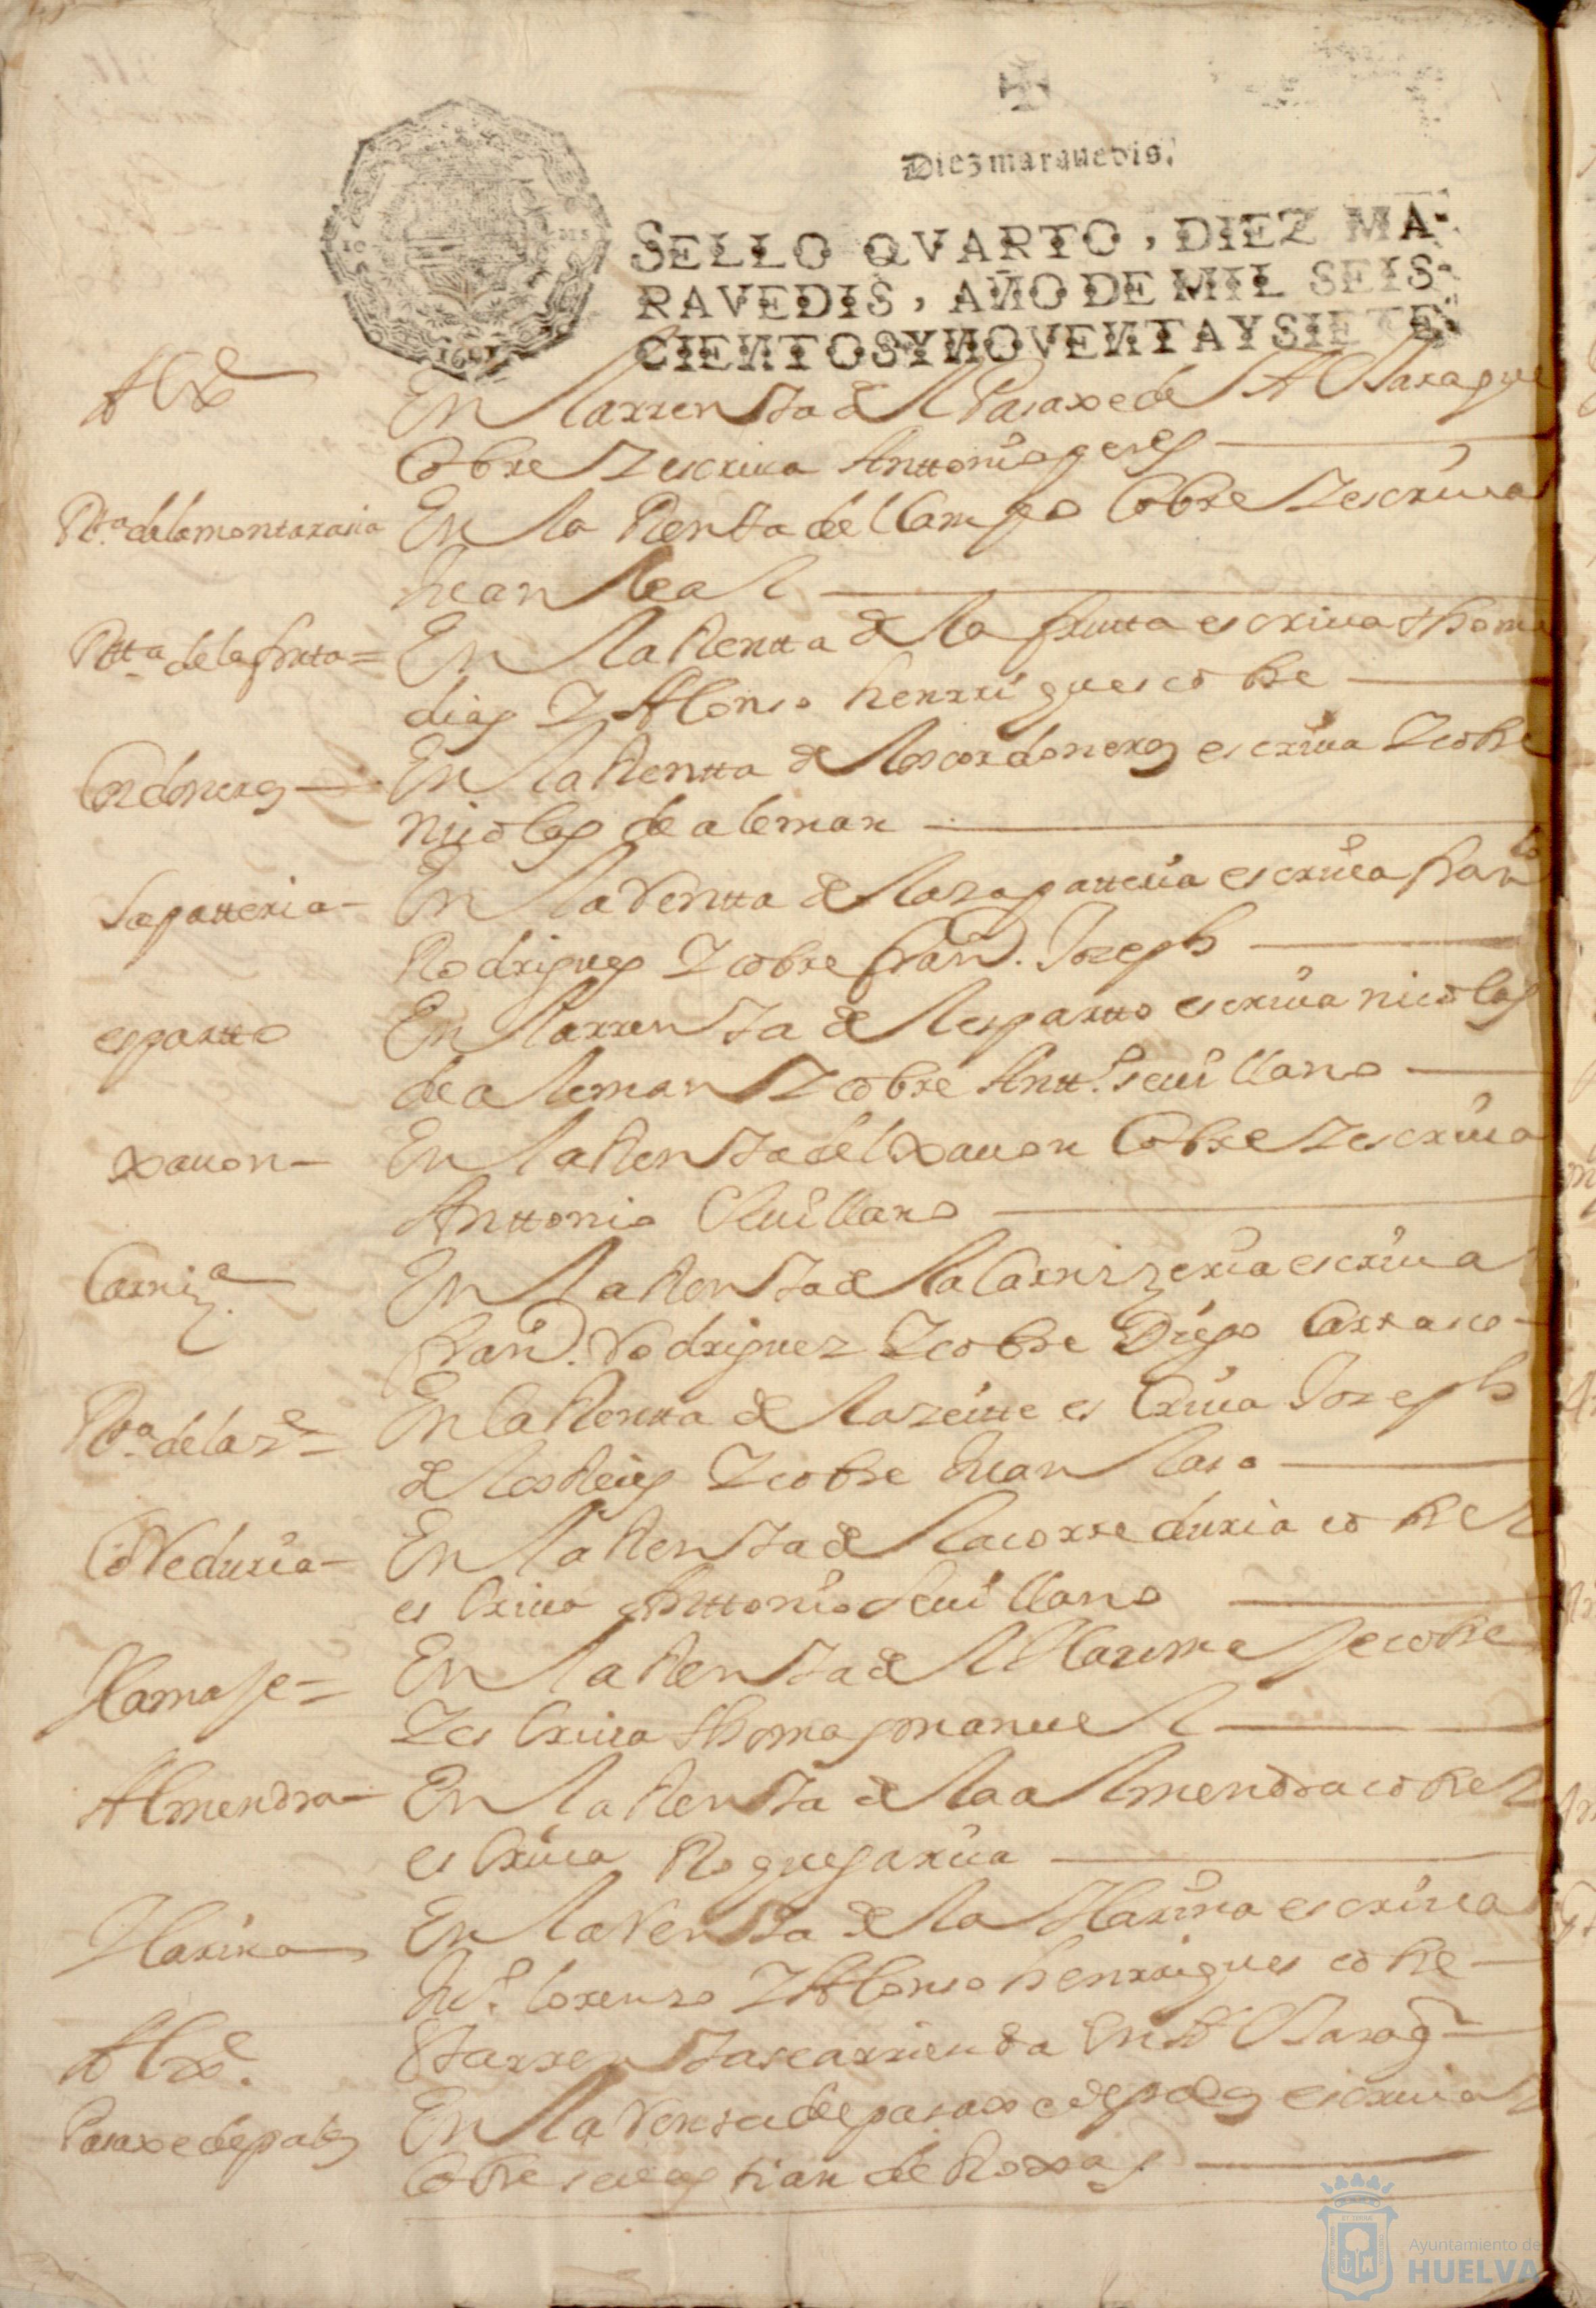 Diez marauedis.
SELLO QVARTO, DIEZ MA-
RAVEDIS, AÑO DE MIL SEIS-
CIENTOS Y NOVENTA Y SIETE
1697
Alxe
En la rrenta del Pasaxe de
Cobre y escriua Anttonio peres
Rta de la montarasia
En la Renta del Campo Cobre y escriua
Juan leal
Rtta de la frutta =
En la Rentta de la frutta escriua thoma
dias y Alonso henrriques cobre
Cordoneros
En la Rentta de los cordoneros escriua y cobre
nicolas de aleman
Sapatteria
En la Rentta de la zapatteria escriua fran.co
Rodrigues y cobre fran.co Joseph
espartto
En la rrenta del espartto escriua nicolas
de aleman y cobre Antt.o seuillano
xauon
En la Renta del xauon Cobre y escriua
Anttonio seuillano
Carniz.a
En la Renta de la Carnizzeria escriua
fran.co Rodriguez y cobre Diego Carrasco
Rta del aze =
En la Rentta del azeitte escriua Joseph
de los Reies y cobre Juan laso
CoReduria
En la Renta de la correduria cobre y
escriua Anttonio seuillano
Hamaje =
En la Renta del cobre
y escriua thomas manuel
Almendra
En la Renta de la almendra cobre y
escriua Roque garzia
Harina
En la Renta de la Harina escriua
Ju.o lorenzo y Alonso henrriques cobre
Alxe.
Esta rrenta se arrienda en
Pasaxe de palos
En la Renta del pasaxe de palos escriua y
Cobre seuastian de Roxas
Ayuntamiento de
HUELVA